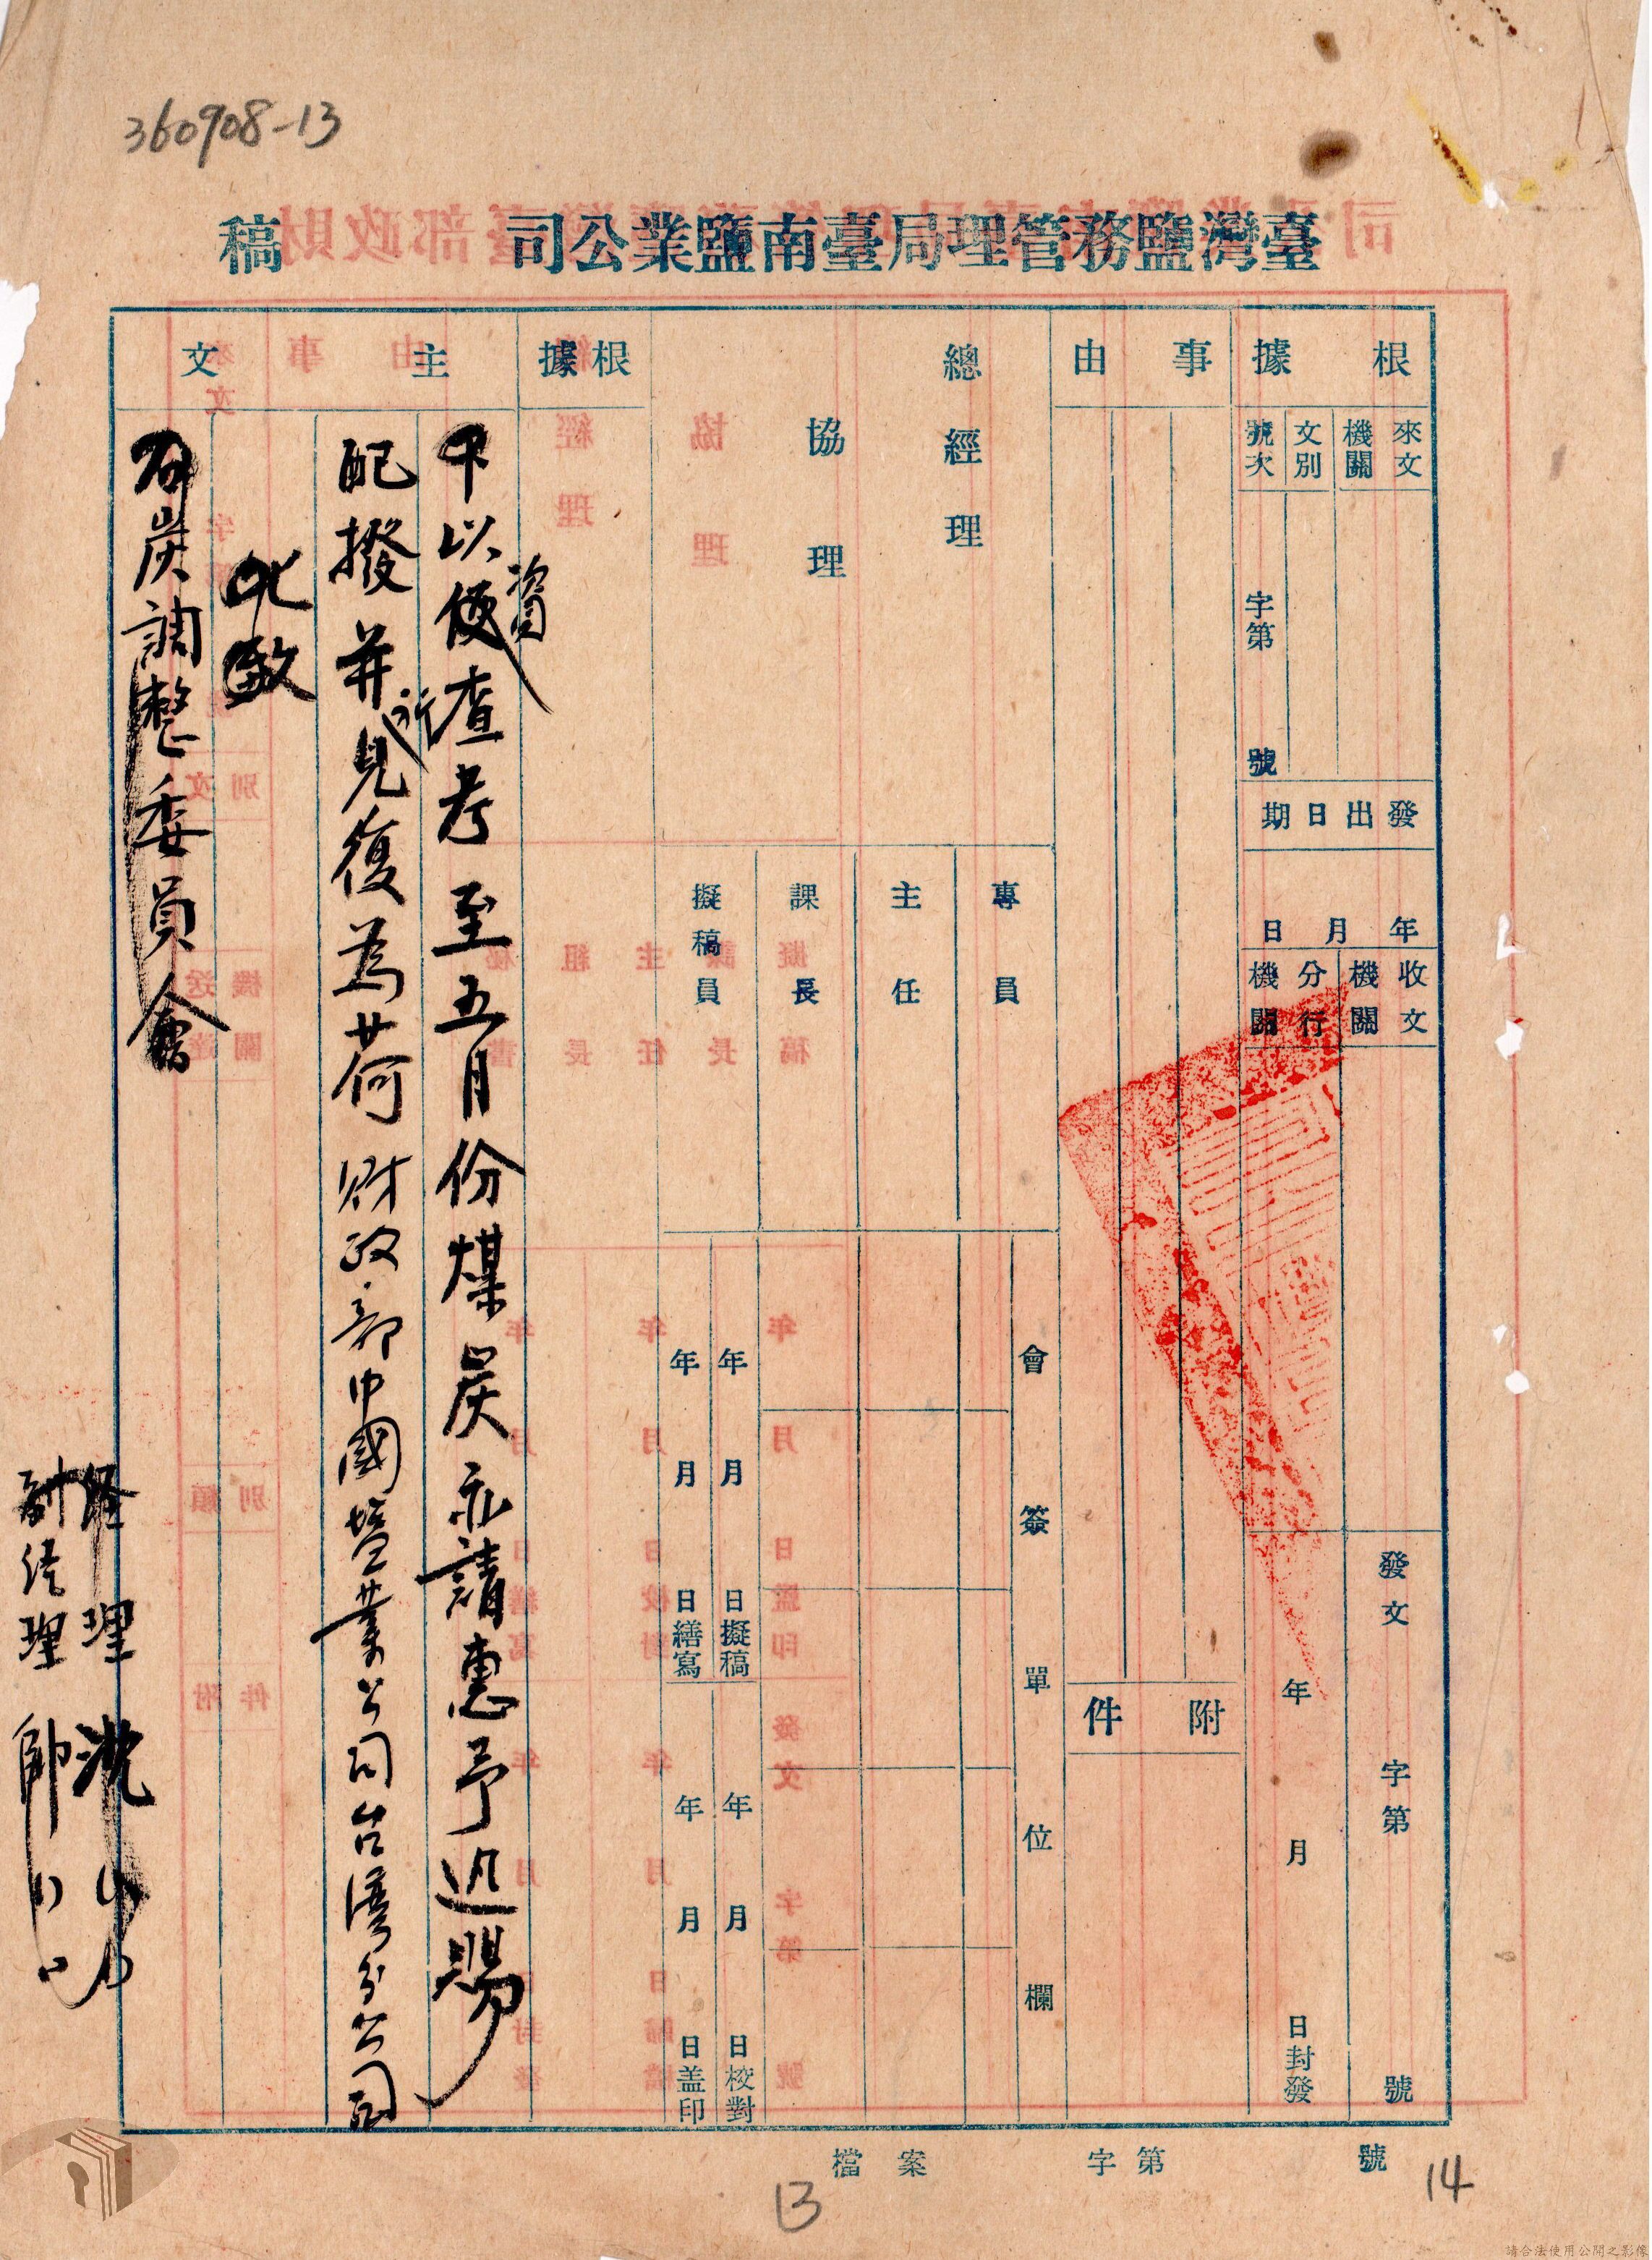 360908-13
臺灣鹽務管理局臺南鹽業公司 稿
根據
來文機關
文別
號次
字第 號
發出日期
年 月 日
收文機關
分行機關
發文 字第 號
年 月 日封發
事由
附件
總經理
協理
專員
主任
課長
擬稿員
會簽單位欄
年 月 日擬稿
年 月 日繕寫
年 月 日校對
年 月 日盖印
根據
主文
以便查考至五月份煤炭亦請惠予迅賜
資
配撥并見復為荷財政部中國盐業公司台灣分公司
所
此致
石炭調整委員會
經理 沈
副经理 帥
檔案 字第 號
13
14
請合法使用公開之影像